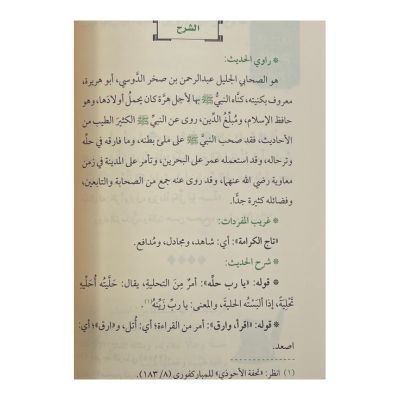 الشرح
* راوي الحديث:
هو الصحابي الجليل عبدالرحمن بن صخر الدَّوسي، أبو هريرة،
معروف بكنيته، كنَّاه النبيُّ ﷺ بها لأجل هرَّة كان يحملُ أولادَها، وهو
حافظ الإسلام، ومُبلِّغُ الدِّين، روى عن النبيِّ ﷺ الكثيرَ الطيب من
الأحاديث، فقد صحب النبيَّ ﷺ على ملئ بطنه، وما فارقه في حلِّه
وترحاله، وقد استعمله عمر على البحرين، وتأمر على المدينة في زمن
معاوية رضي الله عنهما، وقد روى عنه جمع من الصحابة والتابعين،
وفضائله كثيرة جدًّا.
* غريب المفردات:
«تاج الكرامة»: أي: شاهد، ومجادل، ومُدافع.
* شرح الحديث:
* قوله: «يا رب حلِّه»: أمرٌ مِنَ التحلية، يقال: حَلَّيتُه أُحَلِّيهِ
تَحْلِيَةً، إذا أَلبَسْتُه الحليةَ، والمعنى: يا ربِّ زَيِّنْهُ(١).
* قوله: «اقرأ، وارق»: أمر من القراءة؛ أي: أُتل، و«ارق»؛ أي:
اصعد.
(١) انظر: «تحفة الأحوذي» للمباركفوري (٨/ ١٨٣).